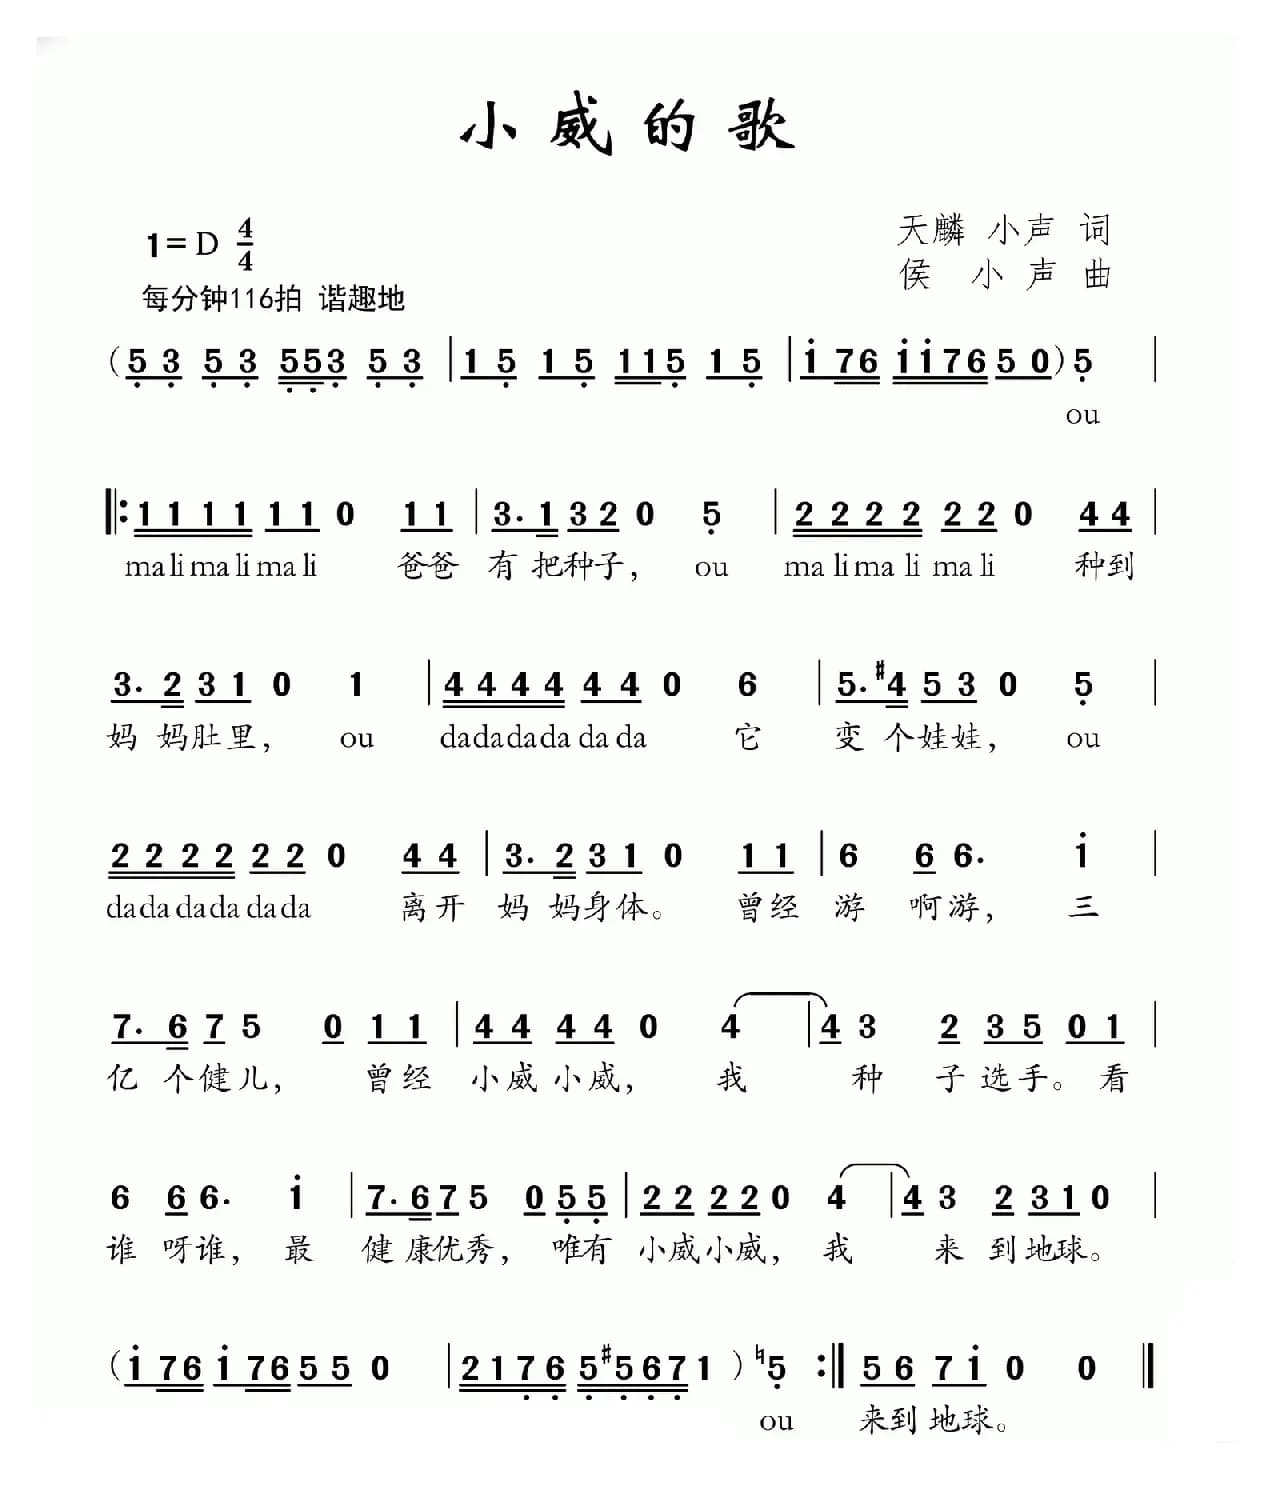 小威的歌
1=D 4/4
天麟 小声 词
每分钟116拍 谐趣地
侯 小声 曲
(5 3 5 3 553 5 3 | 1 5 1 5 115 1 5 | i 76 ii7650) 5 |
ou
|: 1 1 1 1 1 1 0 1 1 | 3. 1 3 2 0 5 | 2 2 2 2 2 2 0 4 4 |
malimalimali 爸爸 有把种子， ou malimalimali 种到
3. 2 3 1 0 1 | 4 4 4 4 4 4 0 6 | 5. #4 5 3 0 5 |
妈妈肚里， ou dadadadadada 它 变个娃娃， ou
2 2 2 2 2 2 0 4 4 | 3. 2 3 1 0 1 1 | 6 6 6. i |
dadadadadada 离开 妈妈身体。 曾经 游 啊游， 三
7. 6 7 5 0 1 1 | 4 4 4 4 0 4 | 4 3 2 3 5 0 1 |
亿个健儿， 曾经 小威小威， 我 种 子选手。 看
6 6 6. i | 7. 6 7 5 0 5 5 | 2 2 2 2 0 4 | 4 3 2 3 1 0 |
谁 呀谁， 最 健康优秀， 唯有 小威小威， 我 来 到地球。
(i 76 i 76 5 5 0 | 2 1 7 6 5 #5 6 7 1) ♮5 :| 5 6 7 i 0 0 |
ou 来到地球。